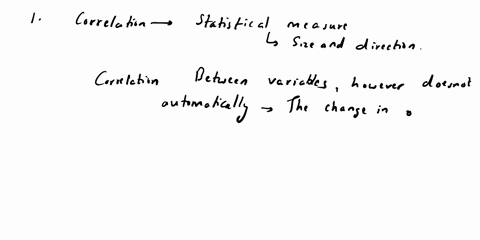 1. Correlation → Statistical measure
↳ Size and direction.
Correlation Between variables, however doesnot
automatically → The change in